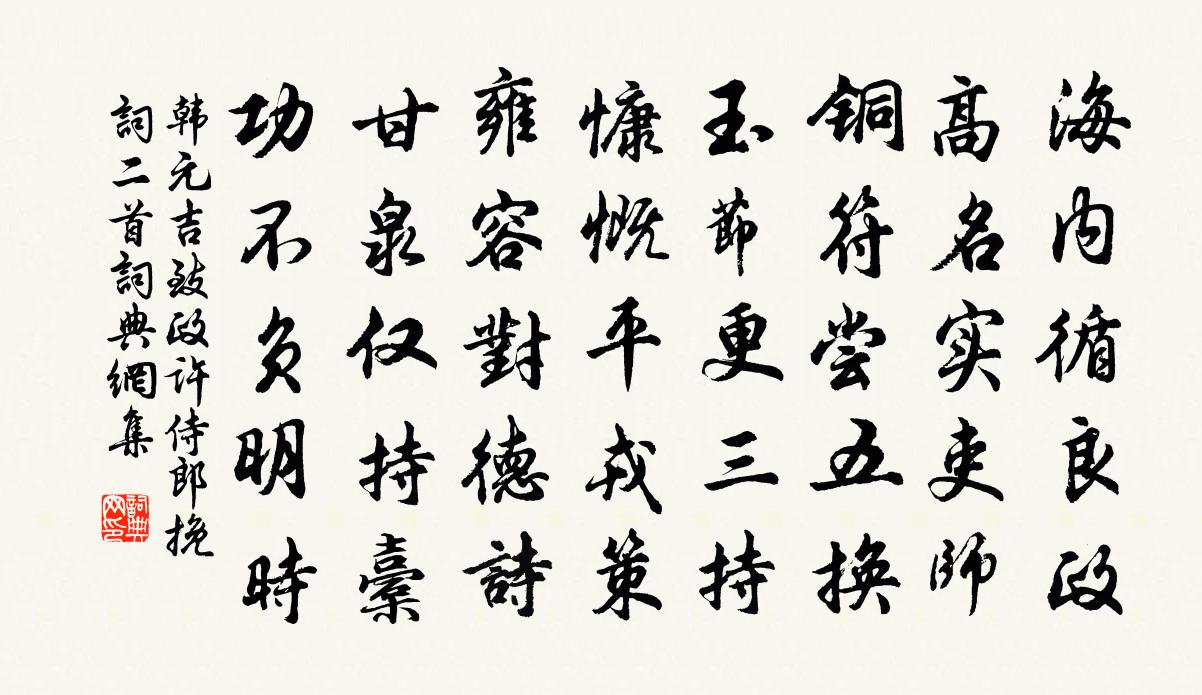 海内循良政
高名实吏師
銅符尝五換
玉節更三持
慷慨平戎策
雍容對德詩
甘泉仅持橐
功不负明時
韩元吉致政许侍郎挽
詞二首詞典網集
詞典網印